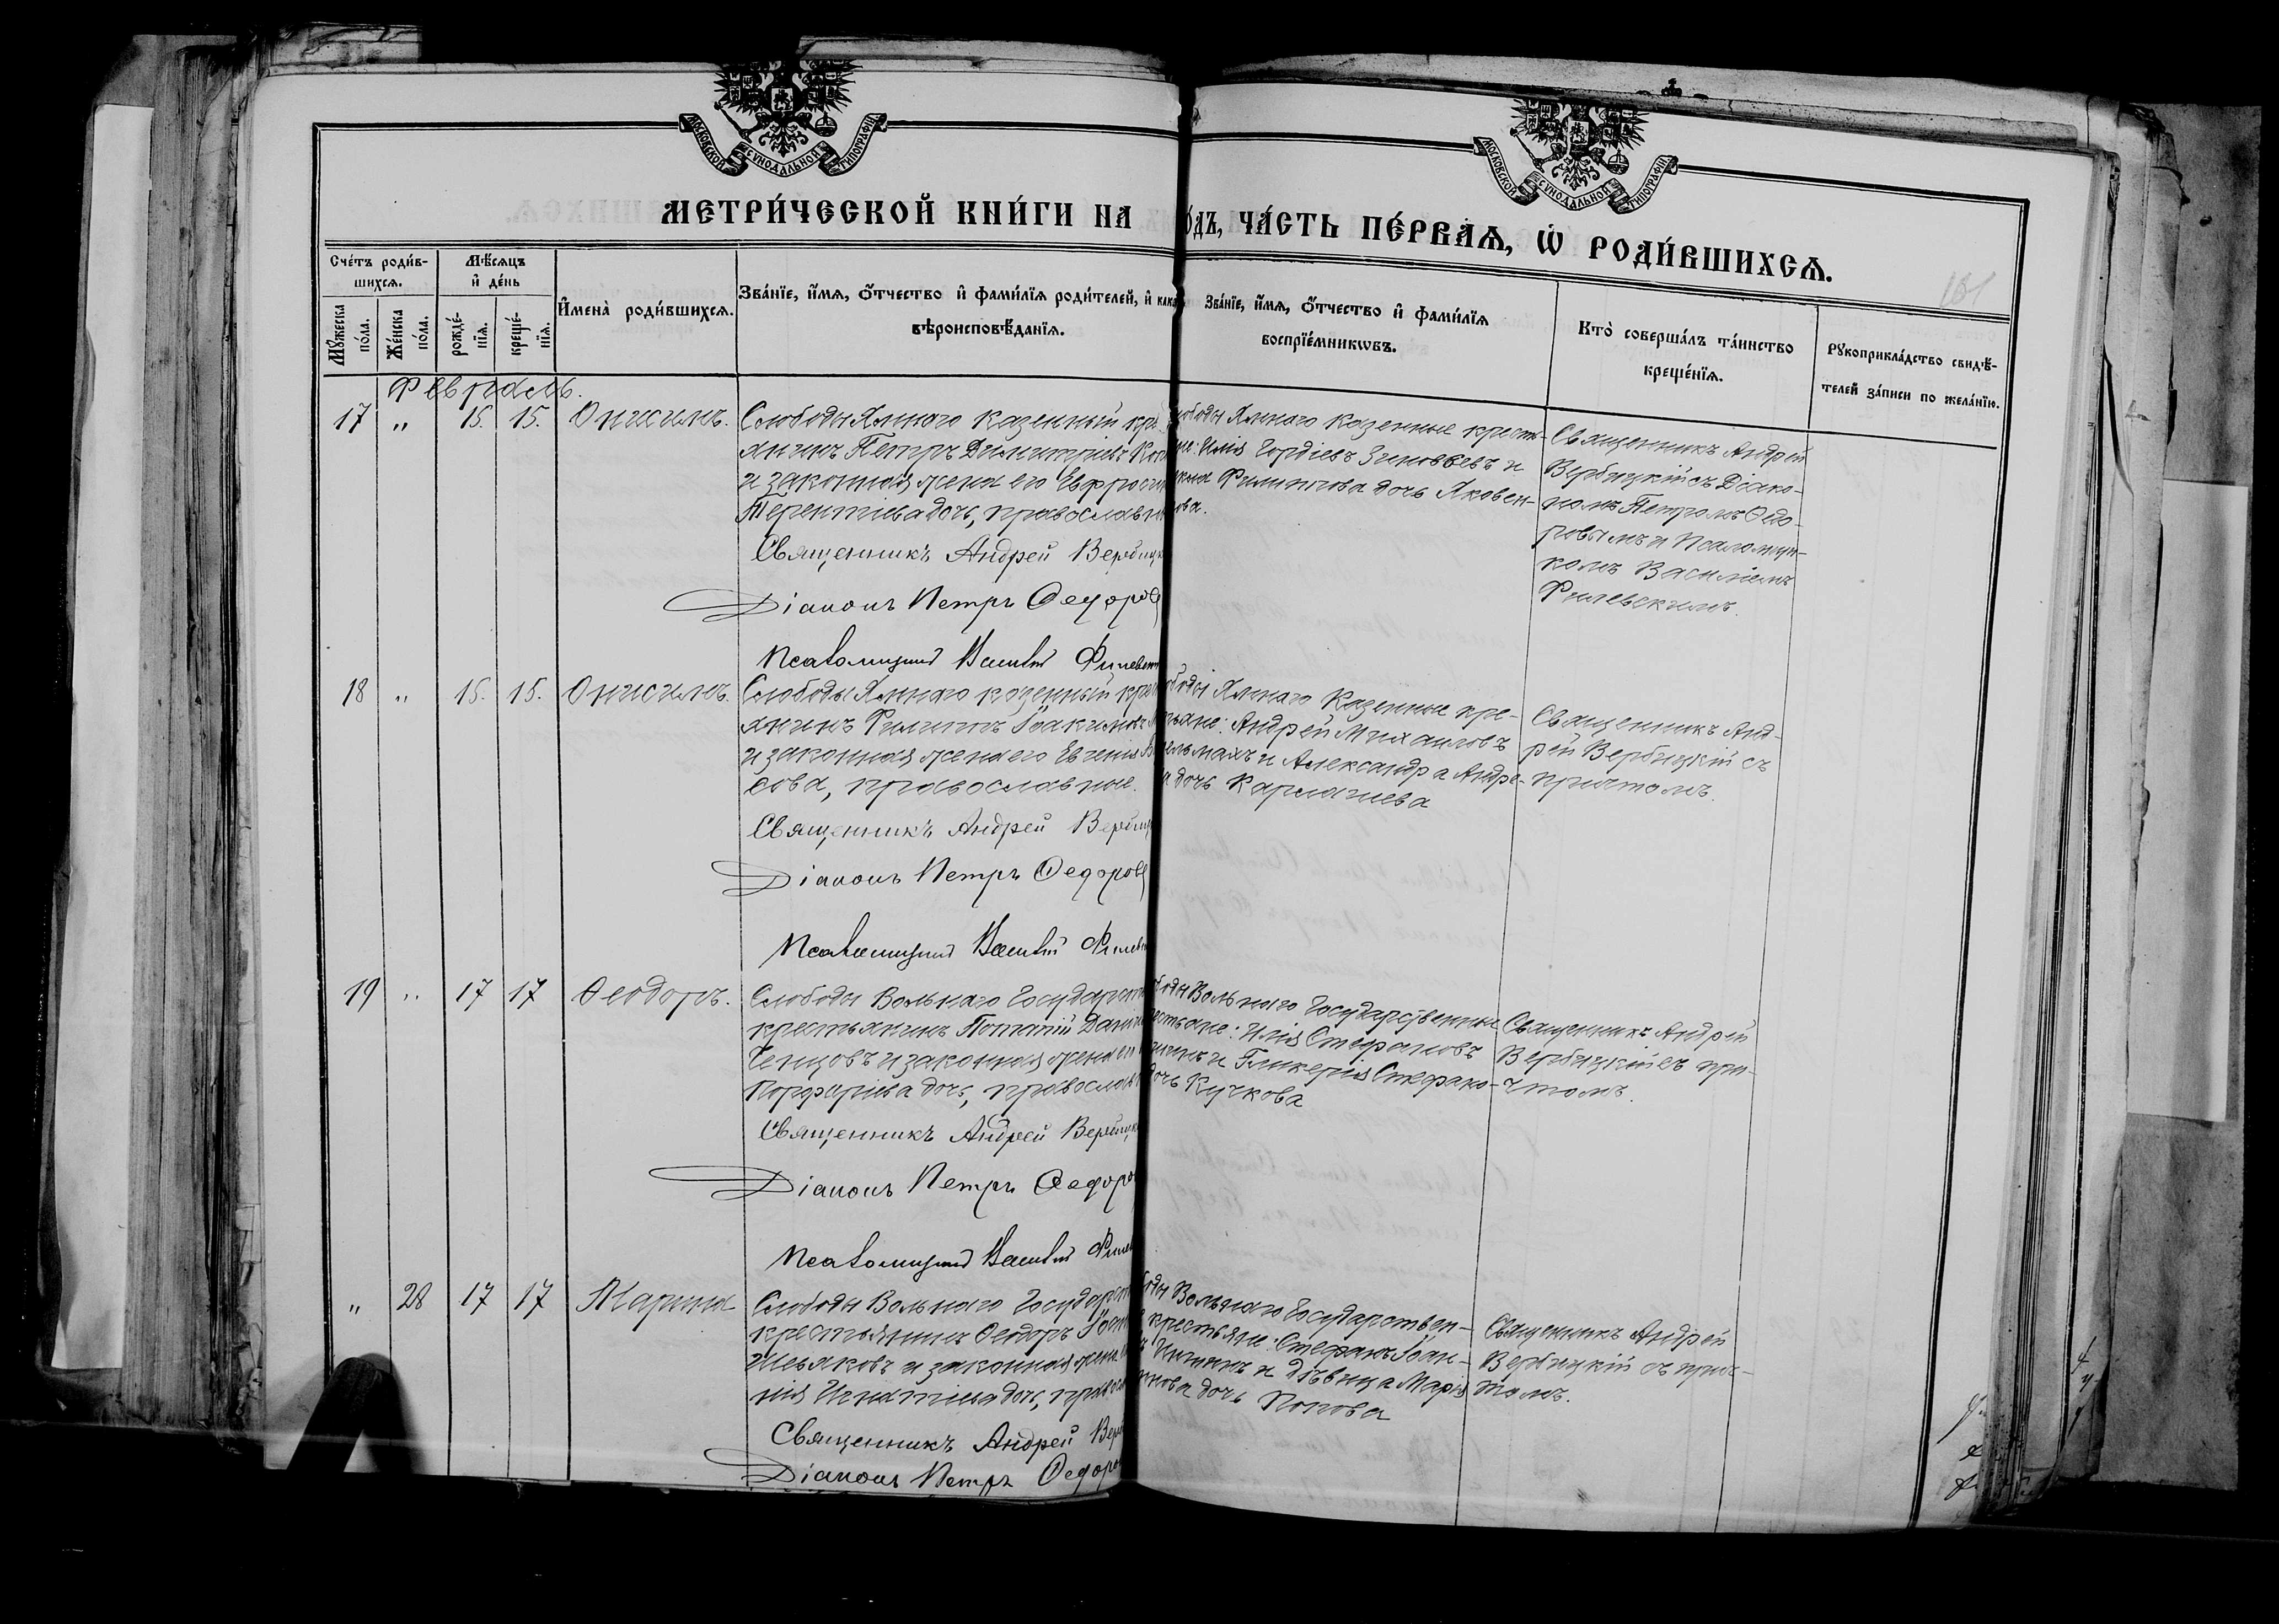 МОСКОВСКОЙ СУНОДАЛЬНОЙ ТИПОГРАФІИ
МОСКОВСКОЙ СУНОДАЛЬНОЙ ТИПОГРАФІИ
МЕТРИ́ЧЕСКОЙ КНИ́ГИ НА
О́ДЪ, ЧА́СТЬ ПЕ́РВАѦ, Ѡ РОДИ́ВШИХСѦ.
181
Сче́тъ роди́в-
шихсѧ.
Мѣ́сѧцъ
и де́нь
Мꙋ́жеска по́ла.
Же́нска по́ла.
рожде́нїѧ.
креще́нїѧ.
Имена̀ роди́вшихсѧ.
Зва́нїе, и́мѧ, о́тчество и фами́лїѧ роди́телей, и како
вѣроисповѣ́данїѧ.
Зва́нїе, и́мѧ, о́тчество и фами́лїѧ
воспрїе́мникѡвъ.
Кто̀ соверша́лъ та́инство
креще́нїѧ.
Рꙋкоприкла́дство свидѣ́-
телей за́писи по жела́нїю.
Февраль.
17 " 15. 15. Онисимъ.
Слободы Ямнаго казенный кре
янинъ Петръ Димитріевъ Кос
и законная жена его Евфроси
Терентіева дочь, православн
Священникъ Андрей Вербицк
Діаконъ Петръ Федоров
Псаломщикъ Василій Филевск
ободы Ямнаго Казенные кресть-
не: Илія Гордіевъ Зиновьевъ и
Филиппова дочь Яковен-
кова.
Священникъ Андрей
Вербицкій съ Діако-
номъ Петромъ Федо-
ровымъ и Псаломщи-
комъ Василіемъ
Филевскимъ.
18 " 15. 15. Онисимъ.
Слободы Ямнаго казенный крес
янинъ Филиппъ Іоакимовъ
и законная жена его Евгенія
сова, православные.
Священникъ Андрей Вербиц
Діаконъ Петръ Федоров
Псаломщикъ Василій Филевс
ободы Ямнаго Казенные кре-
тьяне: Андрей Михаиловъ
ельмахъ и Александра Андре-
а дочь Карпачева
Священникъ Анд-
рей Вербицкій съ
причтомъ.
19 " 17 17 Феодоръ.
Слободы Вольнаго Государст
крестьянинъ Потапій Данил
Чепцовъ и законная жена его
Порфиріева дочь, православ
Священникъ Андрей Вербицк
Діаконъ Петръ Федоро
Псаломщикъ Василій Филе
оды Вольнаго Государственные
естьяне: Илія Стефановъ
и Гликерія Стефано-
дочь Кучкова
Священникъ Андрей
Вербицкій съ при-
чтомъ.
" 28 17 17 Марина
Слободы Вольнаго Государст
крестьянинъ Феодоръ Іоан
Шевяковъ и законная жена
нія Игнатіева дочь, правос
Священникъ Андрей Верб
Діаконъ Петръ Федоро
оды Вольнаго Государствен-
крестьяне: Стефанъ Іоан-
и дѣвица Марія
нова дочь Попова
Священникъ Андрей
Вербицкій съ прич-
томъ.